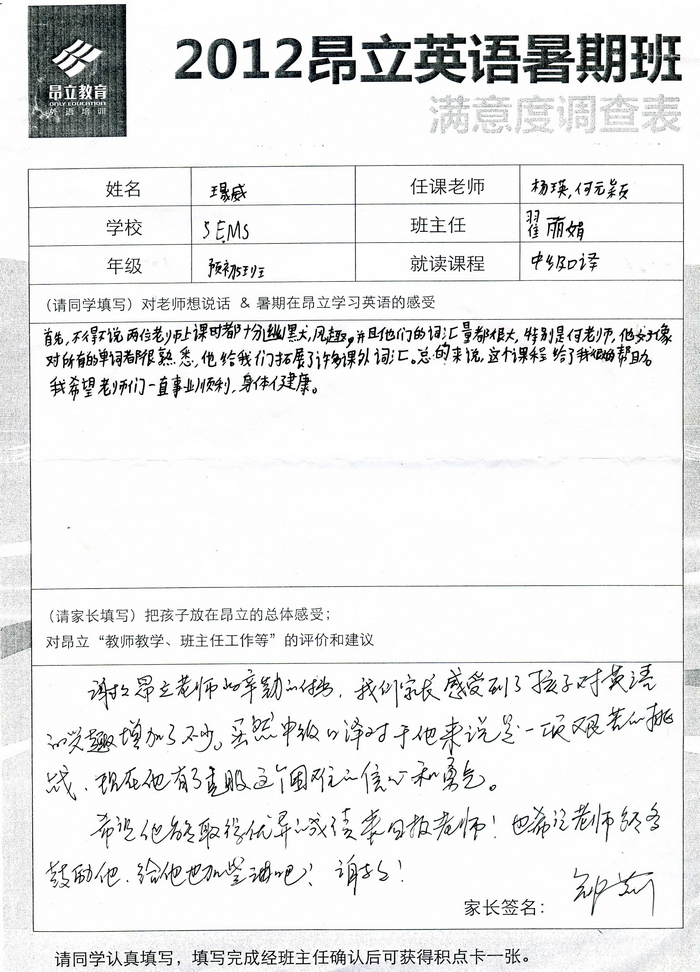 昂立教育
ONLY EDUCATION
外语培训
2012昂立英语暑期班
满意度调查表
姓名 晟威 任课老师 杨瑛,何元颖
学校 SEMS 班主任 翟丽娟
年级 预初5班 就读课程 中级口译
(请同学填写)对老师想说话 & 暑期在昂立学习英语的感受
首先,不得不说两位老师上课时都十分幽默,风趣。并且他们的词汇量都很大,特别是何老师,他好像
对所有的单词都很熟悉,他给我们拓展了许多课外词汇。总的来说,这个课程给了我很的帮助
我希望老师们一直事业顺利,身体健康。
(请家长填写)把孩子放在昂立的总体感受;
对昂立“教师教学、班主任工作等”的评价和建议
谢谢昂立老师的辛勤付出,我们家长感受到了孩子对英语
的兴趣增加了不少。虽然中级口译对于他来说是一项艰苦的挑
战,现在他有了克服这个困难的信心和勇气。
希望他能取得优异的成绩来回报老师!也希望老师能多
鼓励他,给他也加堂课吧!谢谢!
家长签名:
请同学认真填写,填写完成经班主任确认后可获得积点卡一张。